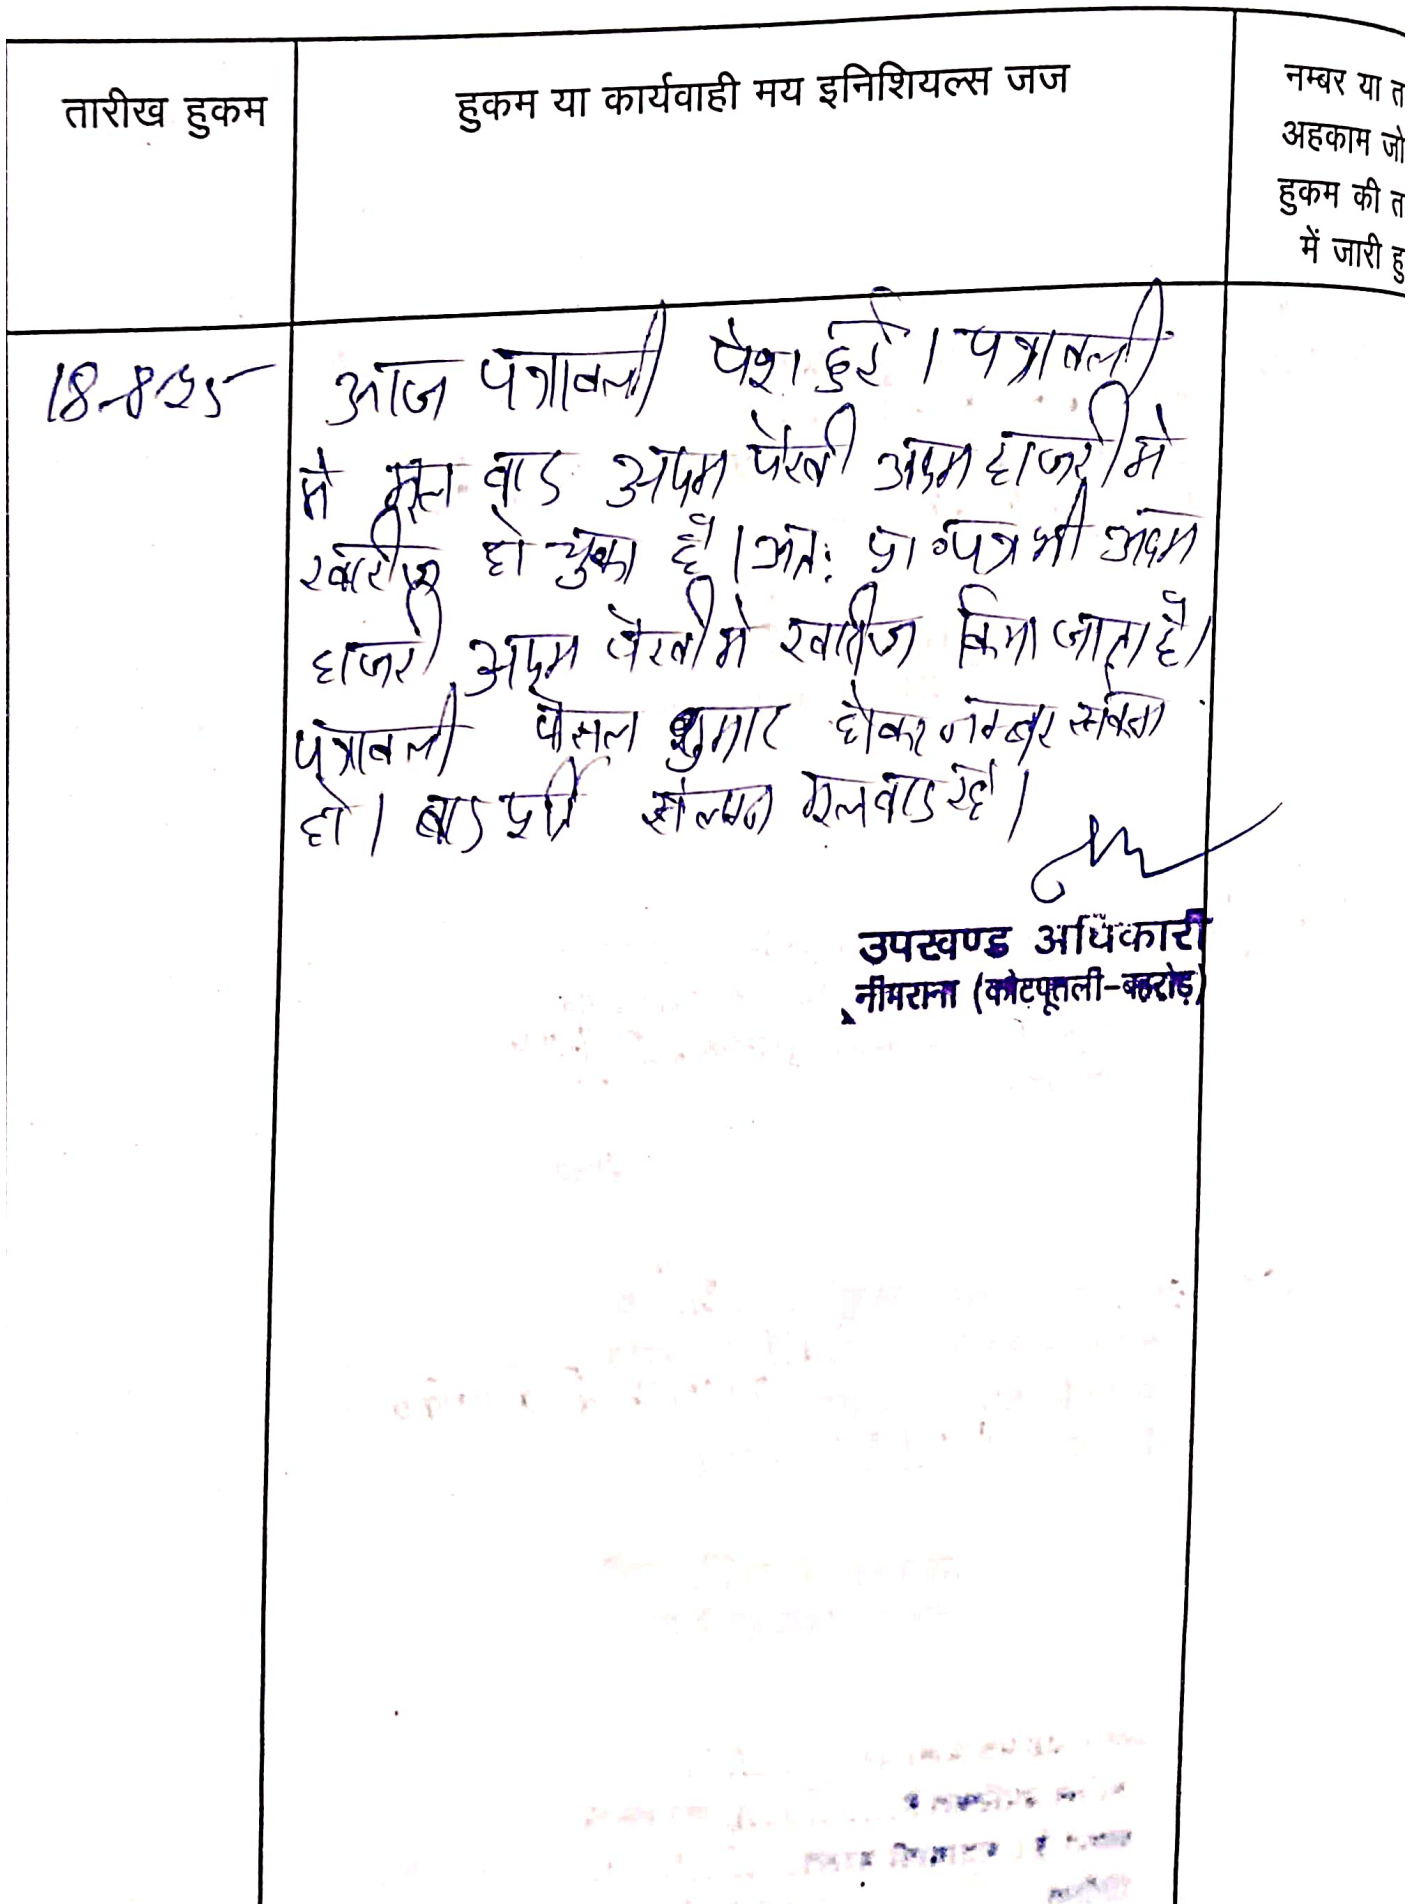 तारीख हुकम
हुकम या कार्यवाही मय इनिशियल्स जज
नम्बर या त
अहकाम जो
हुकम की त
में जारी हु
18-8-25
आज पत्रावली पेश हुई। पत्रावली
मे मूल वाद अदम पैरवी अदम हाजरी मे
खारीज हो चुका है। अतः प्रा०पत्र भी अदम
हाजरी अदम पैरवी मे खारीज किया जाता है।
पत्रावली फैसल शुमार होकर नम्बर से कम
हो। बाद पूर्ति संलग्न मूलवाद रहे।
उपखण्ड अधिकारी
नीमराना (कोटपूतली-बहरोड़)